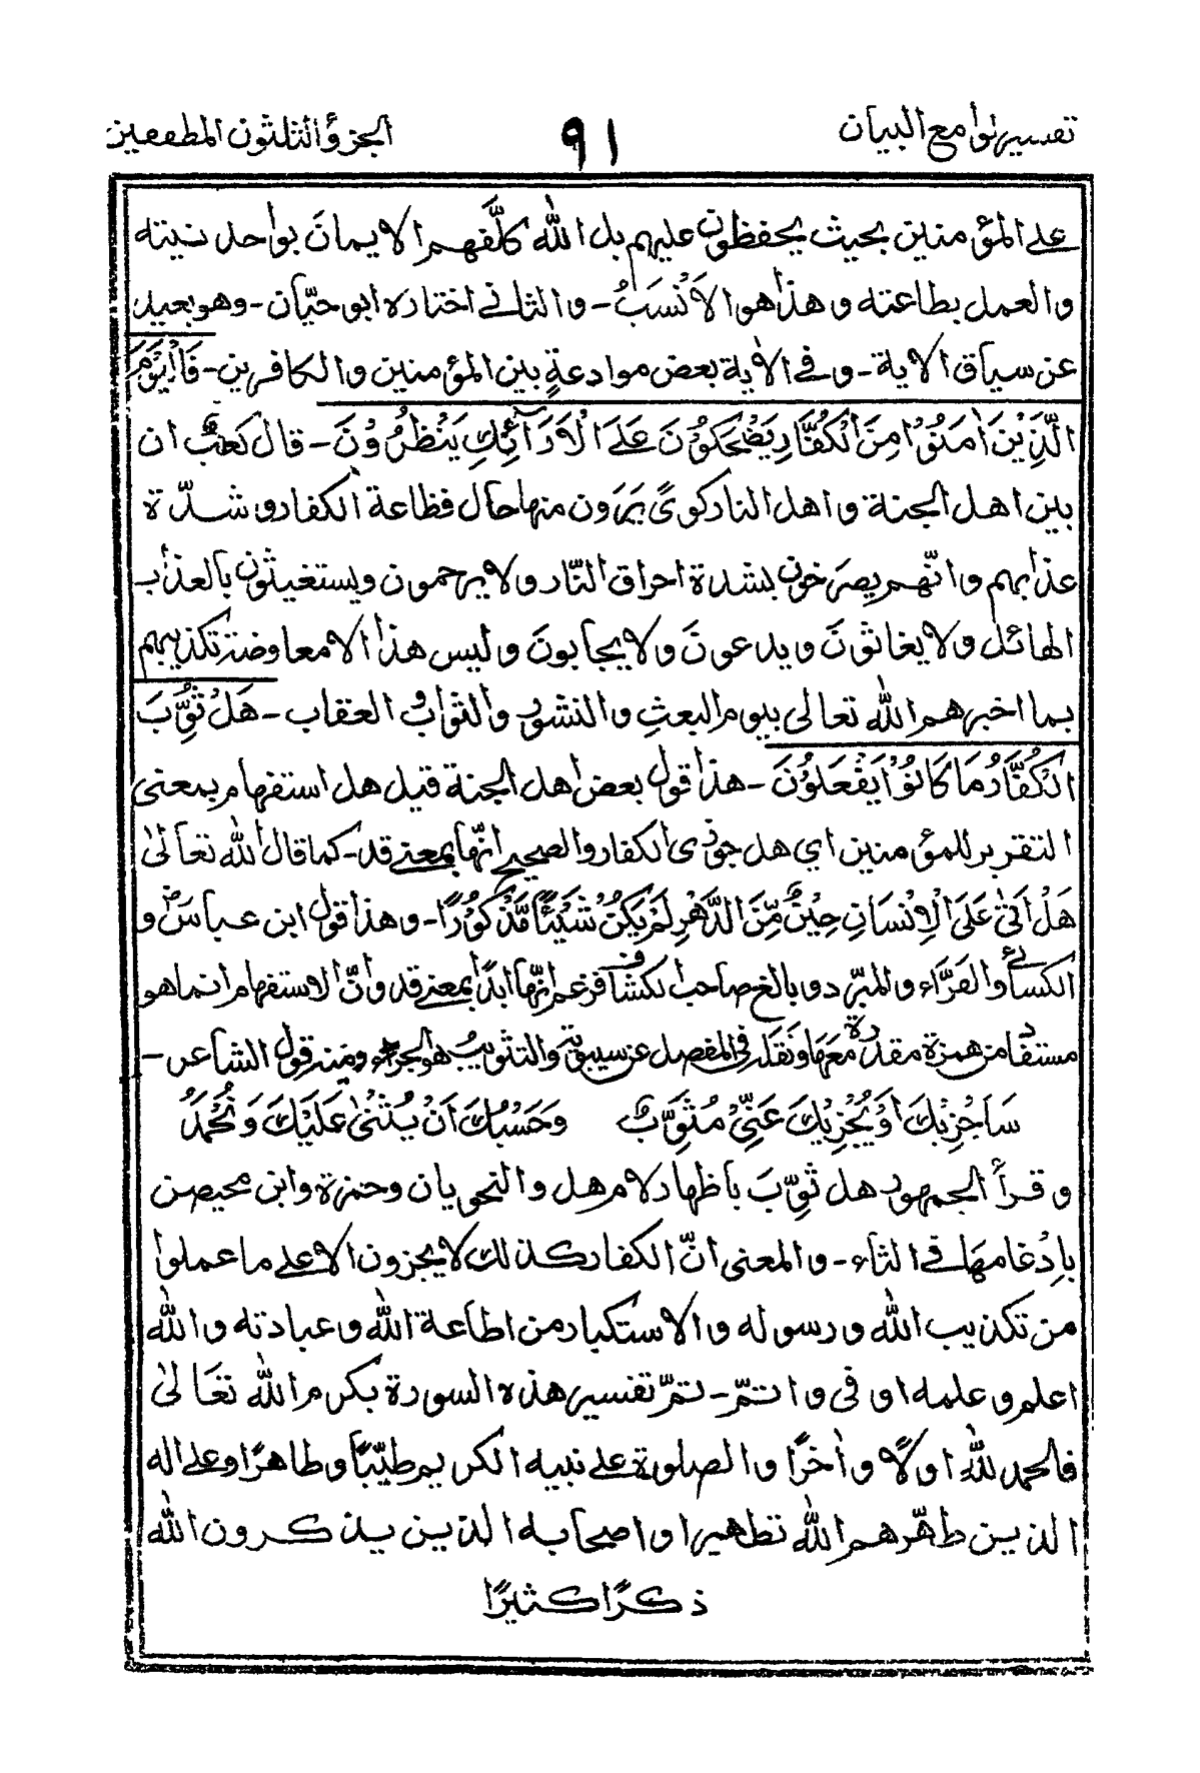 تفسير لوامع البيان
٩١
الجزؤ الثلثون المطففين
على المؤمنين بحيث يحفظون عليهم بل الله كلَّفهم الايمانَ بواحد نيته
والعمل بطاعته وهذا هو الاَنْسَبُ - والثاني اختاره ابو حيّان - وهو بعيد
عن سياق الاٰية - وفي الاٰية بعض موادعةٍ بين المؤمنين والكافرين - فَالْيَوْمَ
الَّذِيْنَ اٰمَنُوْا مِنَ الْكُفَّارِ يَضْحَكُوْنَ عَلَى الْاَرَآئِكِ يَنْظُرُوْنَ - قال كعبٌ ان
بين اهل الجنة واهل النار كوىً يَرَون منها حال فظاعة الكفار و شدّة
عذابهم وانّهم يصرخون بشدة احراق النّار ولا يرحمون ويستغيثون بالعذاب
الهائل ولا يغاثونَ ويدعونَ ولا يجابونَ وليس هذا الا معاوضة تكذيبهم
بما اخبرهم الله تعالى بيوم البعثِ والنشور والثواب و العقاب - هَلْ ثُوِّبَ
الْكُفَّارُ مَا كَانُوْا يَفْعَلُوْنَ - هذا قول بعض اهل الجنة قيل هل استفهام بمعنى
التقرير للمؤمنين اي هل جوزى الكفار والصحيح انّها بمعنى قد - كما قال الله تعالىٰ
هَلْ اَتىٰ عَلَى الْاِنْسَانِ حِيْنٌ مِّنَ الدَّهْرِ لَمْ يَكُنْ شَيْئًا مَّذْكُوْرًا - وهذا قول ابن عباسؓ و
الكسائي والفَرَّاء والمبرّد وبالغ صاحب الكشاف فزعم انّها ابدًا بمعنى قد وانّ الاستفهام انما هو
مستفاد من همزة مقدرة معها ونقله في المفصل عن سيبويه والتثويب هو الجزاء ومنه قول الشاعر -
سَاَجْزِيْكَ اَوْ يُجْزِيْكَ عَنِّيْ مُثَوِّبٌ     وَحَسْبُكَ اَنْ يُثْنىٰ عَلَيْكَ وَتُحْمَدُ
وقرأ الجمهور هل ثوِّبَ باظهار لام هل والنحويان وحمزة وابن محيصن
بادْغامهَا في الثاء - والمعنى انّ الكفار كذلك لا يجزون الا على ما عملوا
من تكذيب الله ورسوله والاستكبار من اطاعة الله وعبادته والله
اعلم وعلمه اوفى واتمّ - تمّ تفسير هذه السورة بكرم الله تَعَالىٰ
فالحمد لله اولاً واٰخرًا والصلوة على نبيه الكريم طيّبًا وطاهرًا وعلى اٰله
الذين طهّرهم الله تطهيرا واصحابه الذين يذكرون الله
ذكرًا كثيرًا